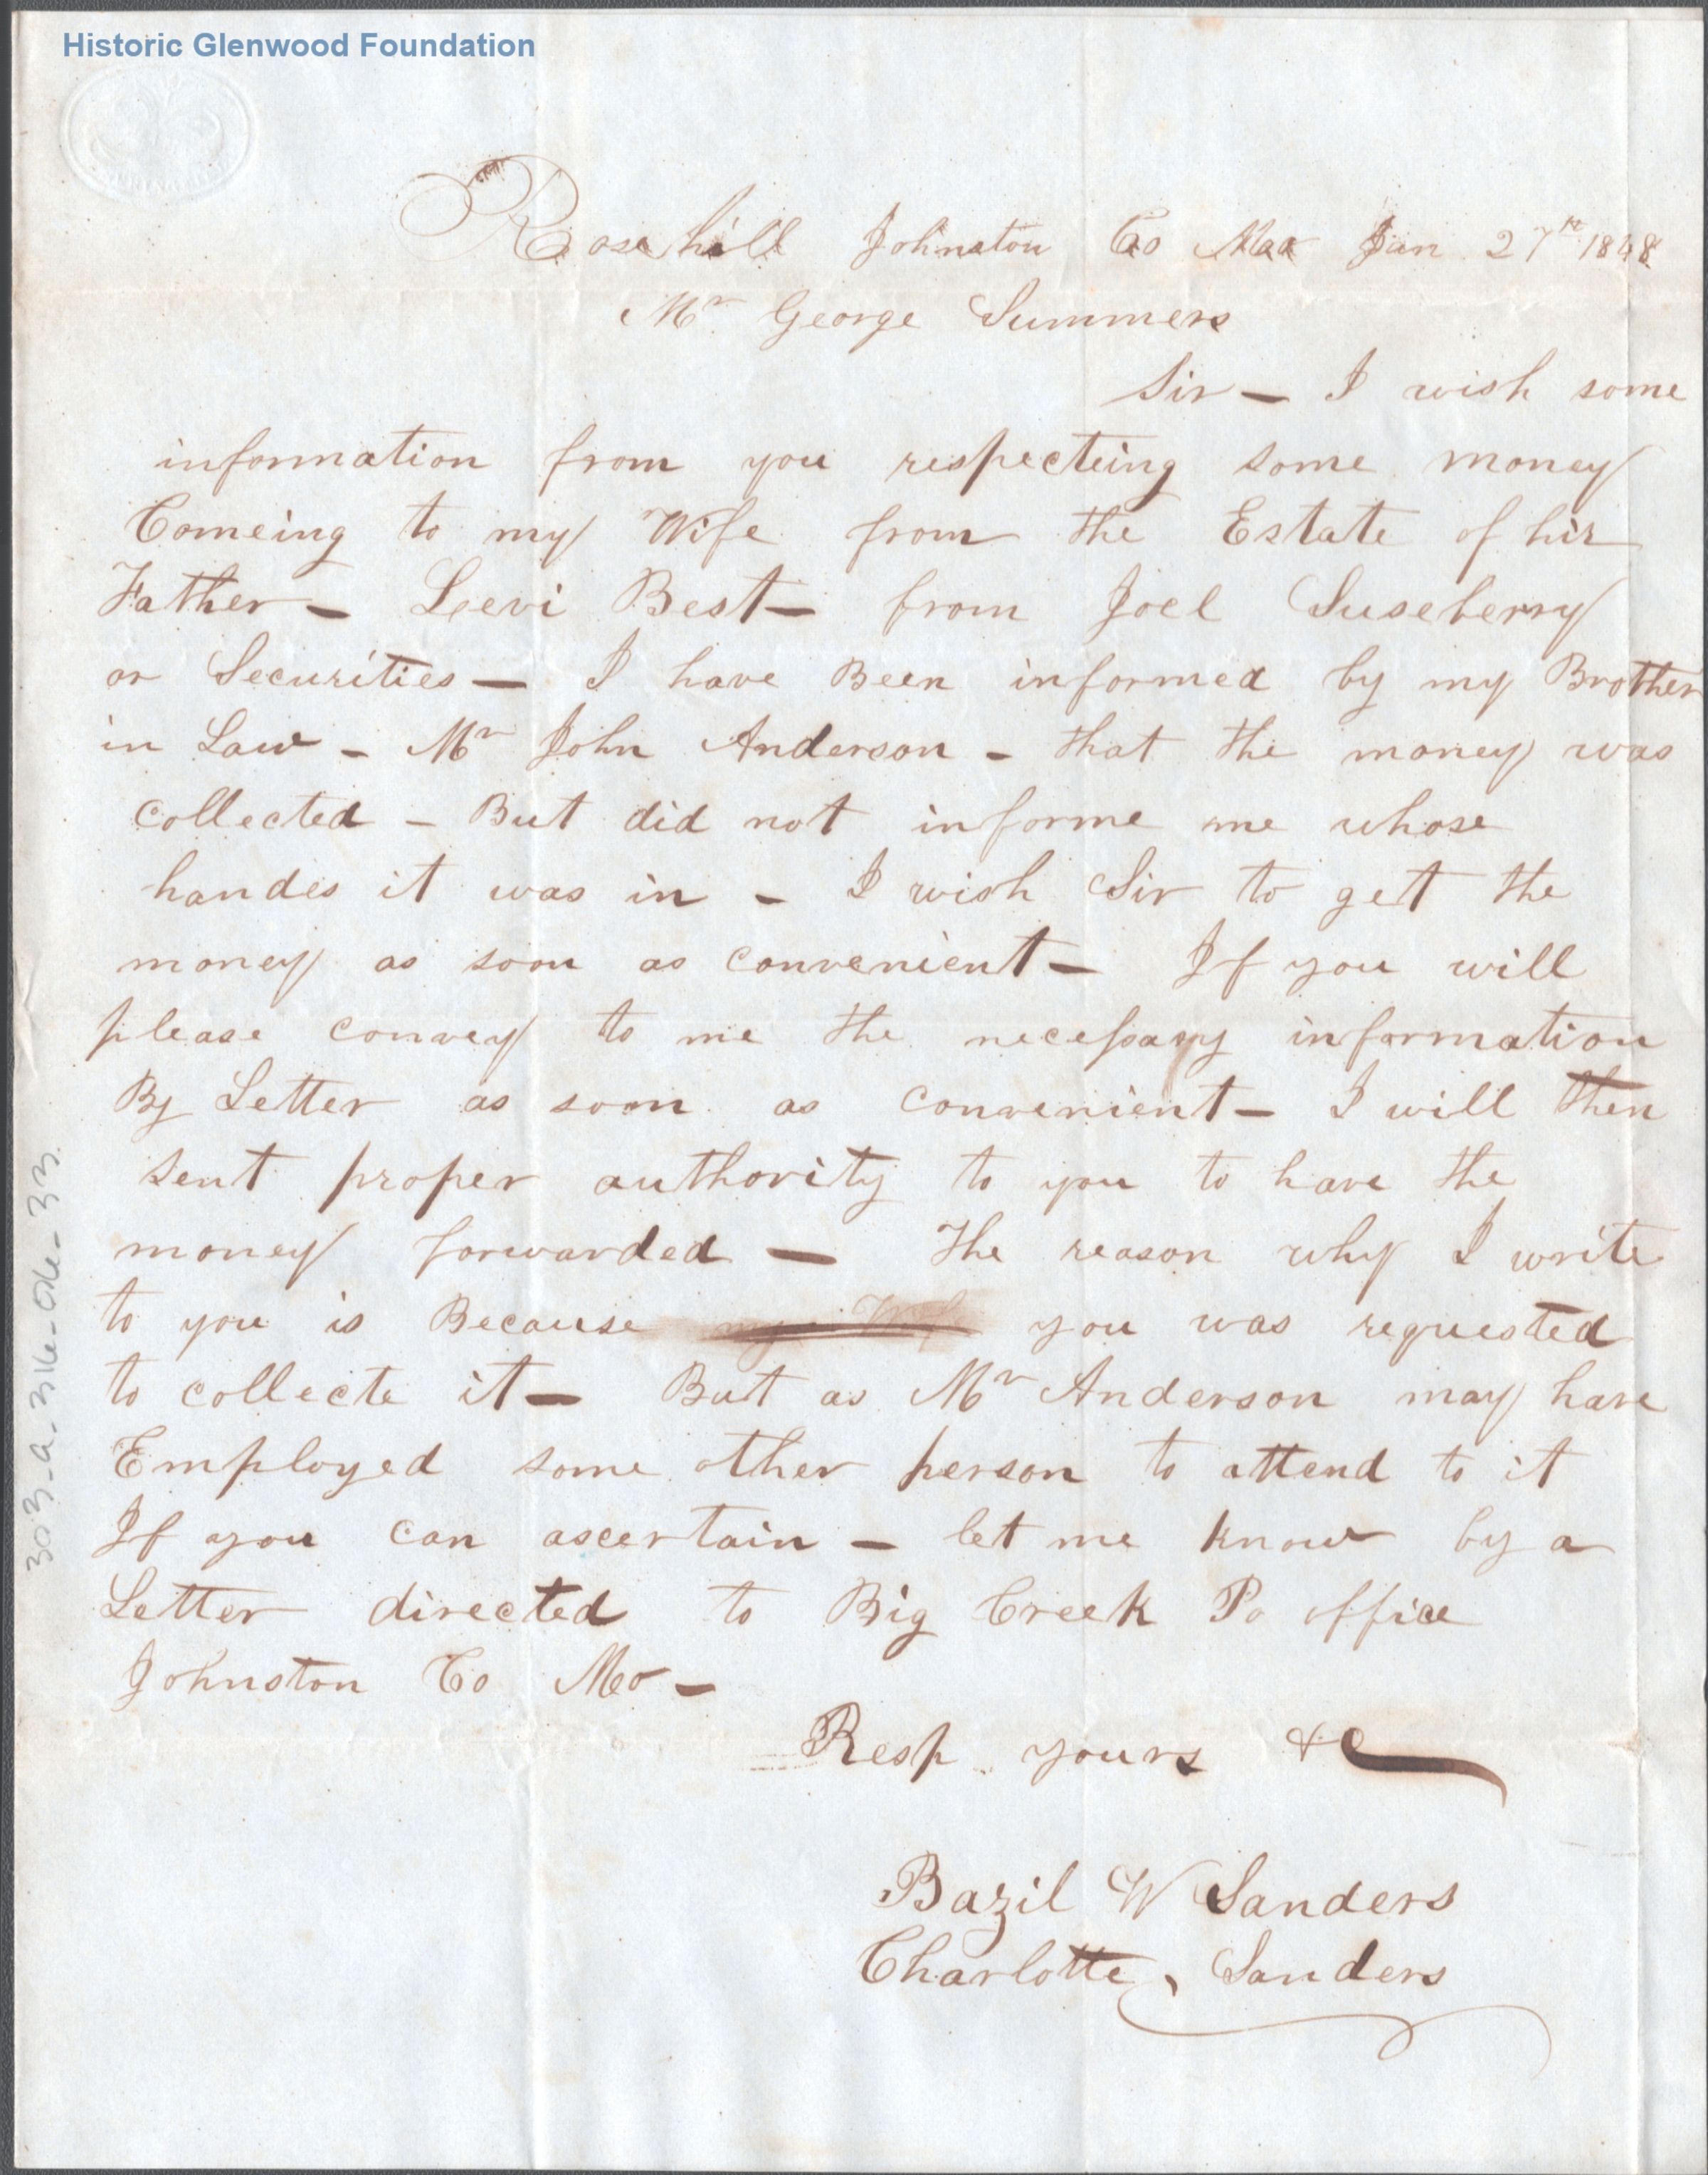 Historic Glenwood Foundation
Rosehill Johnston Co Jan 27th 1848
Mr George Summers
Sir — I wish some
information from you respecteing some money
Comeing to my Wife from the Estate of hir
Father — Leevi Best — from Joel Suseberry
or Securities — I have Been informed by my Brother
in Law — Mr John Anderson — that the money was
collected — But did not informe me whose
handes it was in — I wish Sir to get the
money as soon as convenient — If you will
please convey to me the necessary information
By Letter as soon as convenient — I will then
sent proper authority to you to have the
money forwarded — The reason why I write
to you is Because you was requested
to collecte it — But as Mr Anderson may have
Employed some other person to attend to it
If you can ascertain — let me know by a
Letter directed to Big Creek Po office
Johnston Co Mo —
Resp yours &c
Bazil W Sanders
Charlotte, Sanders
303-a-316-06-33